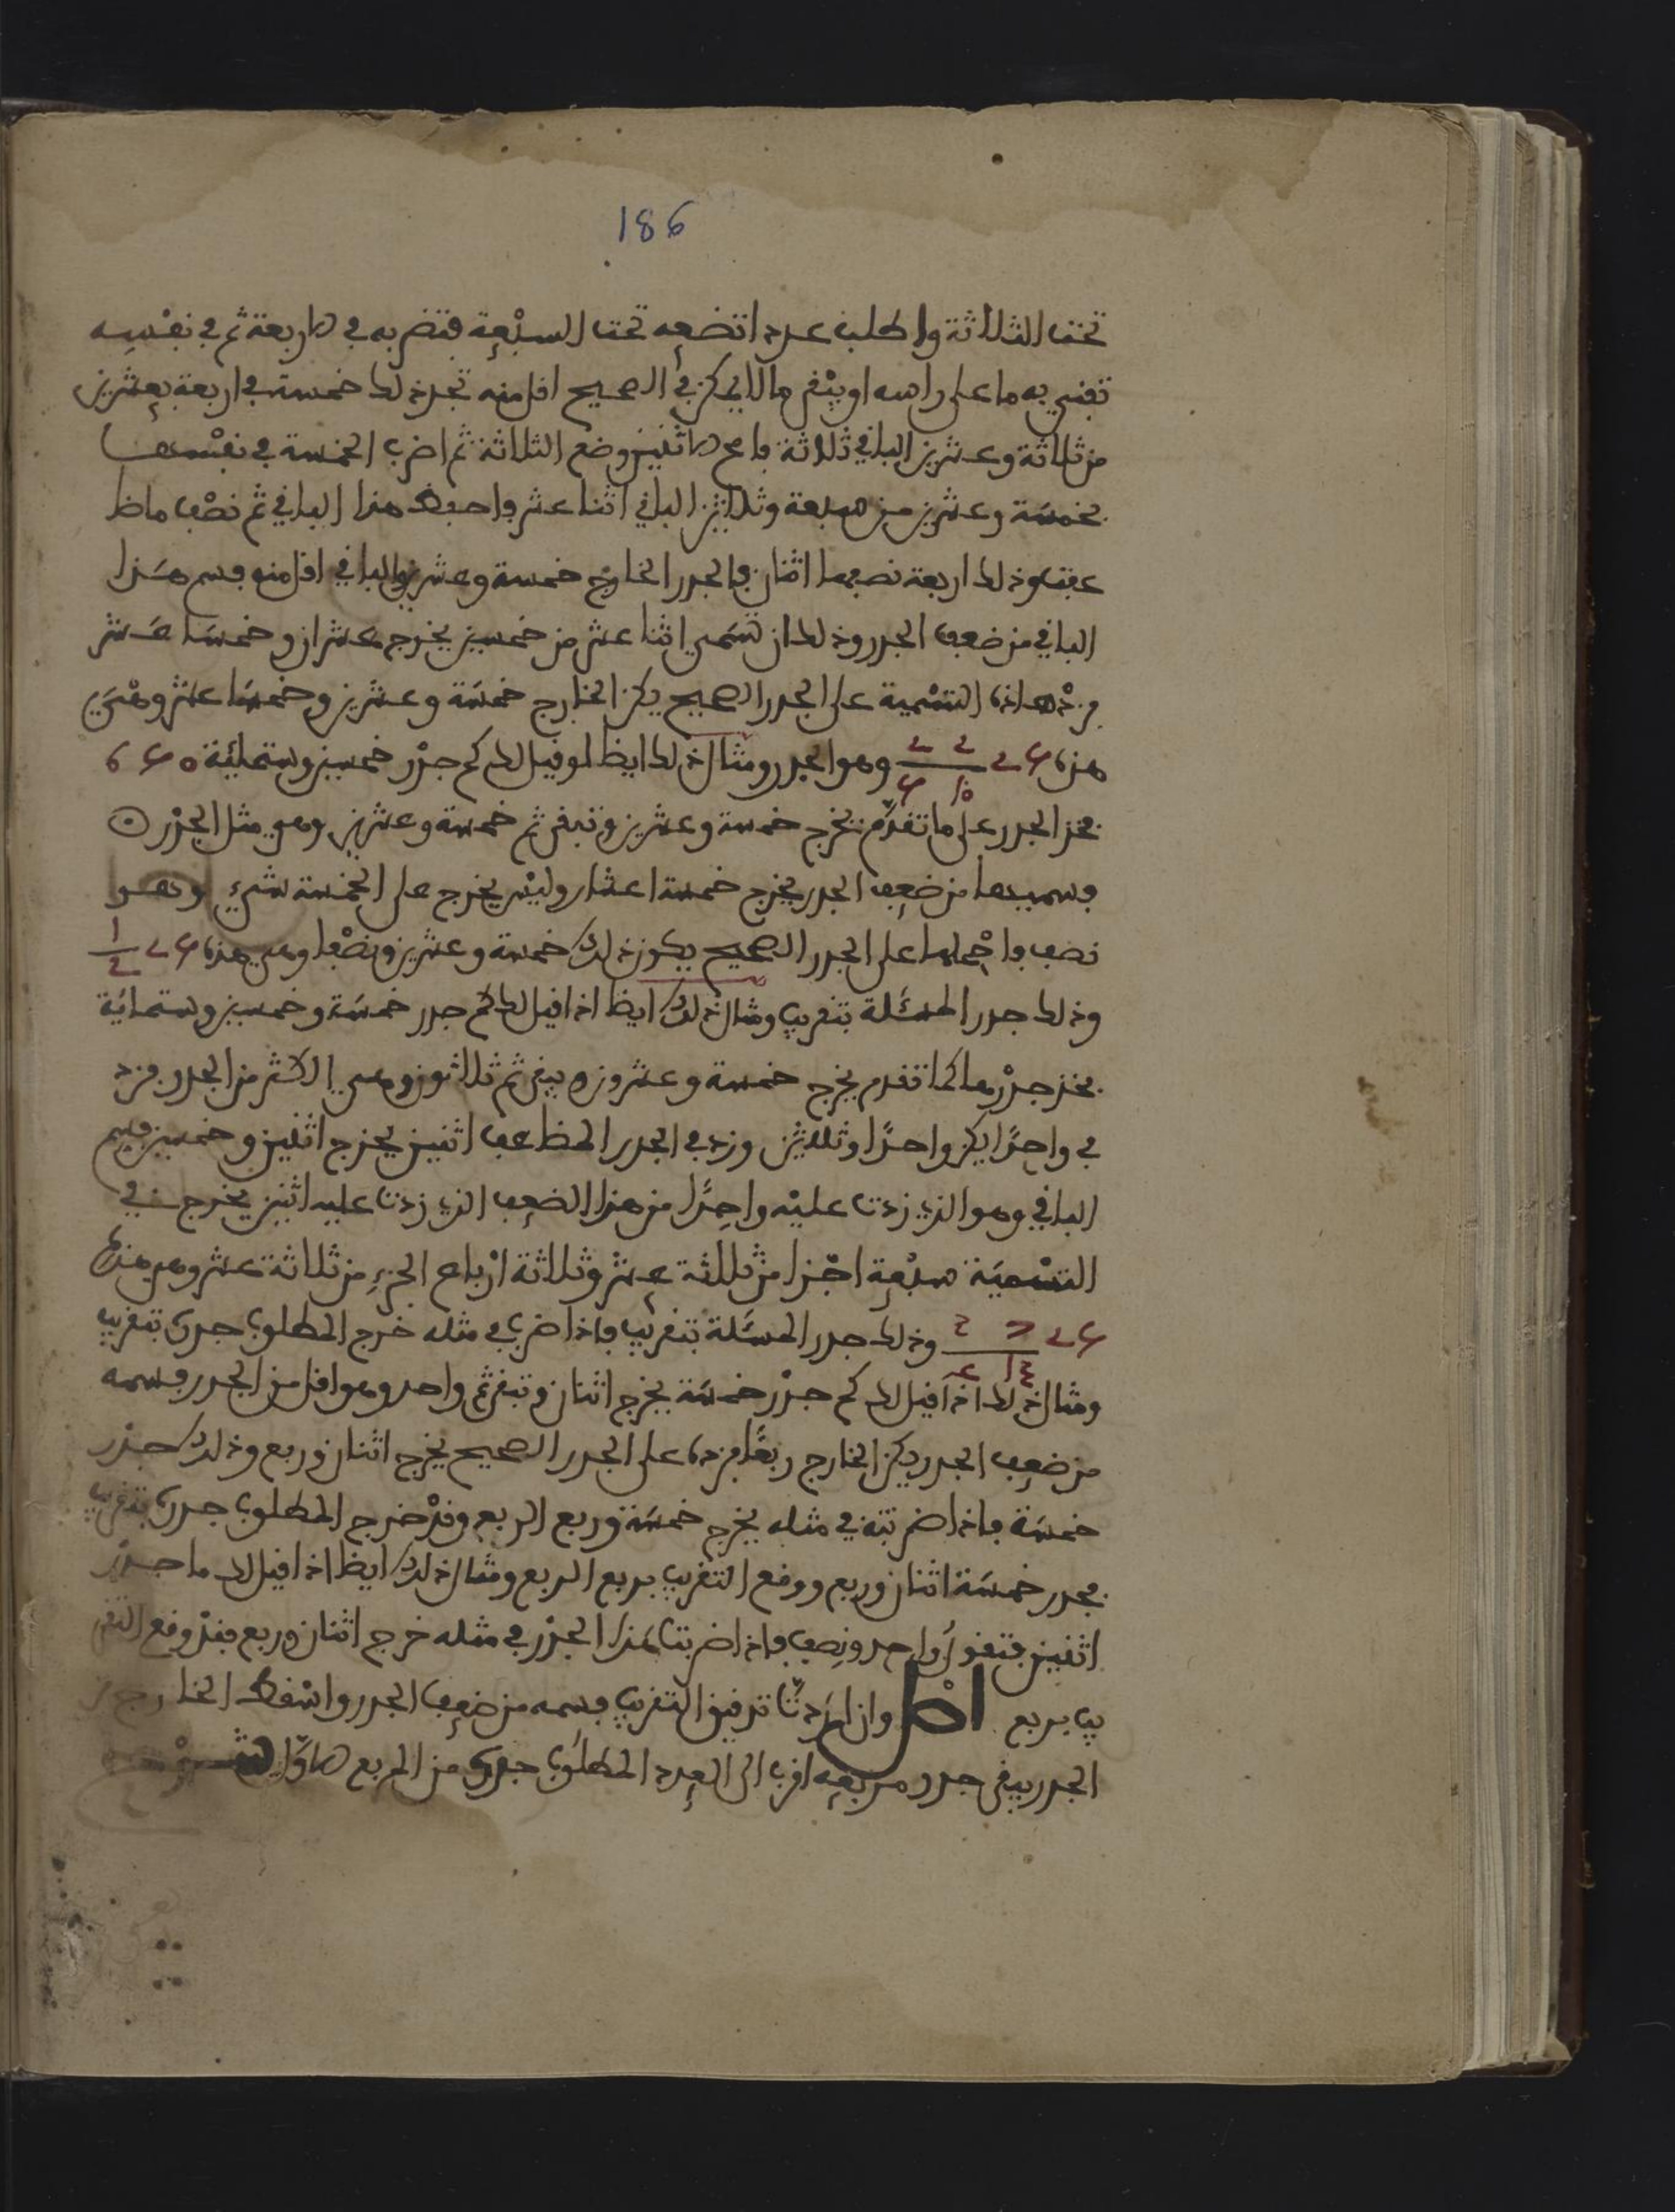 186
تحت الثلاثة واطلب عددا تضعه تحت السبعة فتضربه في الاربعة ثم في نفسه
تفني به ما على راسه او يبقى ما لا يمكن في الصحيح اقل منه تجد ذلك خمسة في اربعة بعشرين
من ثلاثة وعشرين الباقي ثلاثة فامح الاثنين وضع الثلاثة ثم اضرب الخمسة في نفسها
بخمسة وعشرين من سبعة وثلاثين الباقي اثنا عشر فاحفظ هذا الباقي ثم نصف ما ظا
عفت وذلك اربعة نصفها اثنان فالجدر الخارج خمسة وعشرين والباقي اقل منه فسم هذا
الباقي من ضعف الجدر وذلك ان تسمي اثنا عشر من خمسين يخرج عشران وخمسا عشر
فزد هاذه التسمية على الجدر الصحيح يكن الخارج خمسة وعشرين وخمسا عشر وهي
هذه وهو الجدر ومثال ذلك ايظا لو قيل لك كم جذر خمسين وستمائة 650
فخذ الجدر على ما تقدم يخرج خمسة وعشرين وتبقى ثم خمسة وعشرين وهي مثل الجذر
فسميها من ضعف الجدر يخرج خمسة اعشار وليس يخرج على الخمسة شيء وهو
نصف فاحملها على الجدر الصحيح يكون ذلك خمسة وعشرين ونصفا وهي هذه
وذلك جدر المسئلة بتقريب ومثال ذلك ايظا اذا قيل لك كم جدر خمسة وخمسين وستمائة
فخذ جذرها كما تقدم يخرج خمسة وعشرون ويبقى ثم ثلاثون وهي الاكثر من الجدر فزد
في واحدا يكن واحدا وثلاثين وزد في الجدر المظاعف اثنين يخرج اثنين وخمسين فسم
الباقي وهو الذي زدت عليه واحدا من هذا الضعف الذي زدت عليه اثنين يخرج في
التسمية سبعة اجزا من ثلاثة عشر وثلاثة ارباع الجزء من ثلاثة عشر وهي هذه
وذلك جدر المسئلة بتقريب فاذا ضرب في مثله خرج المطلوب جدره بتقريب
ومثال ذلك اذا قيل لك كم جذر خمسة يخرج اثنان وتبقى ثم واحد وهو اقل من الجدر فسمه
من ضعف الجدر يكن الخارج ربعا فزده على الجدر الصحيح يخرج اثنان وربع وذلك جذر
خمسة فاذا ضربته في مثله يخرج خمسة وربع الربع وقد خرج المطلوب جدره بتقريب
فجدر خمسة اثنان وربع ووقع التقريب بربع الربع ومثال ذلك ايظا اذا قيل لك ما جذر
اثنين فتقول واحد ونصف فاذا ضربت هذا الجذر في مثله خرج اثنان وربع فقد وقع التقر
يب بربع وان اردت تدقيق التقريب فسمه من ضعف الجدر واسقط الخارج من
الجدر يبقى جدر مربعه اقرب الى العدد المطلوب جدره من المربع الاول